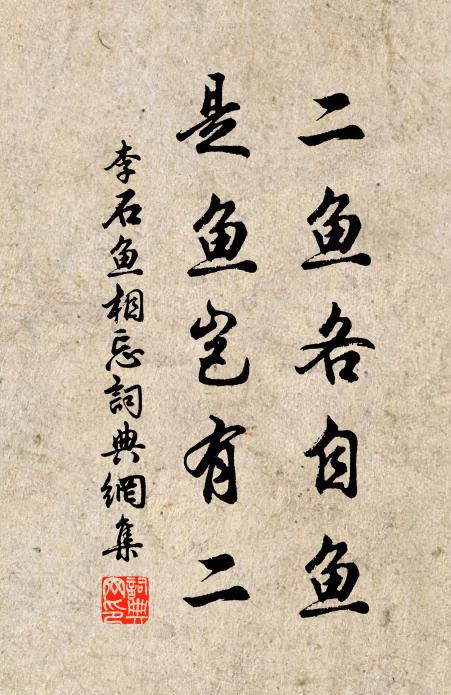 二鱼各自鱼
是鱼岂有二
李石鱼相忘詞典網集
詞典网印